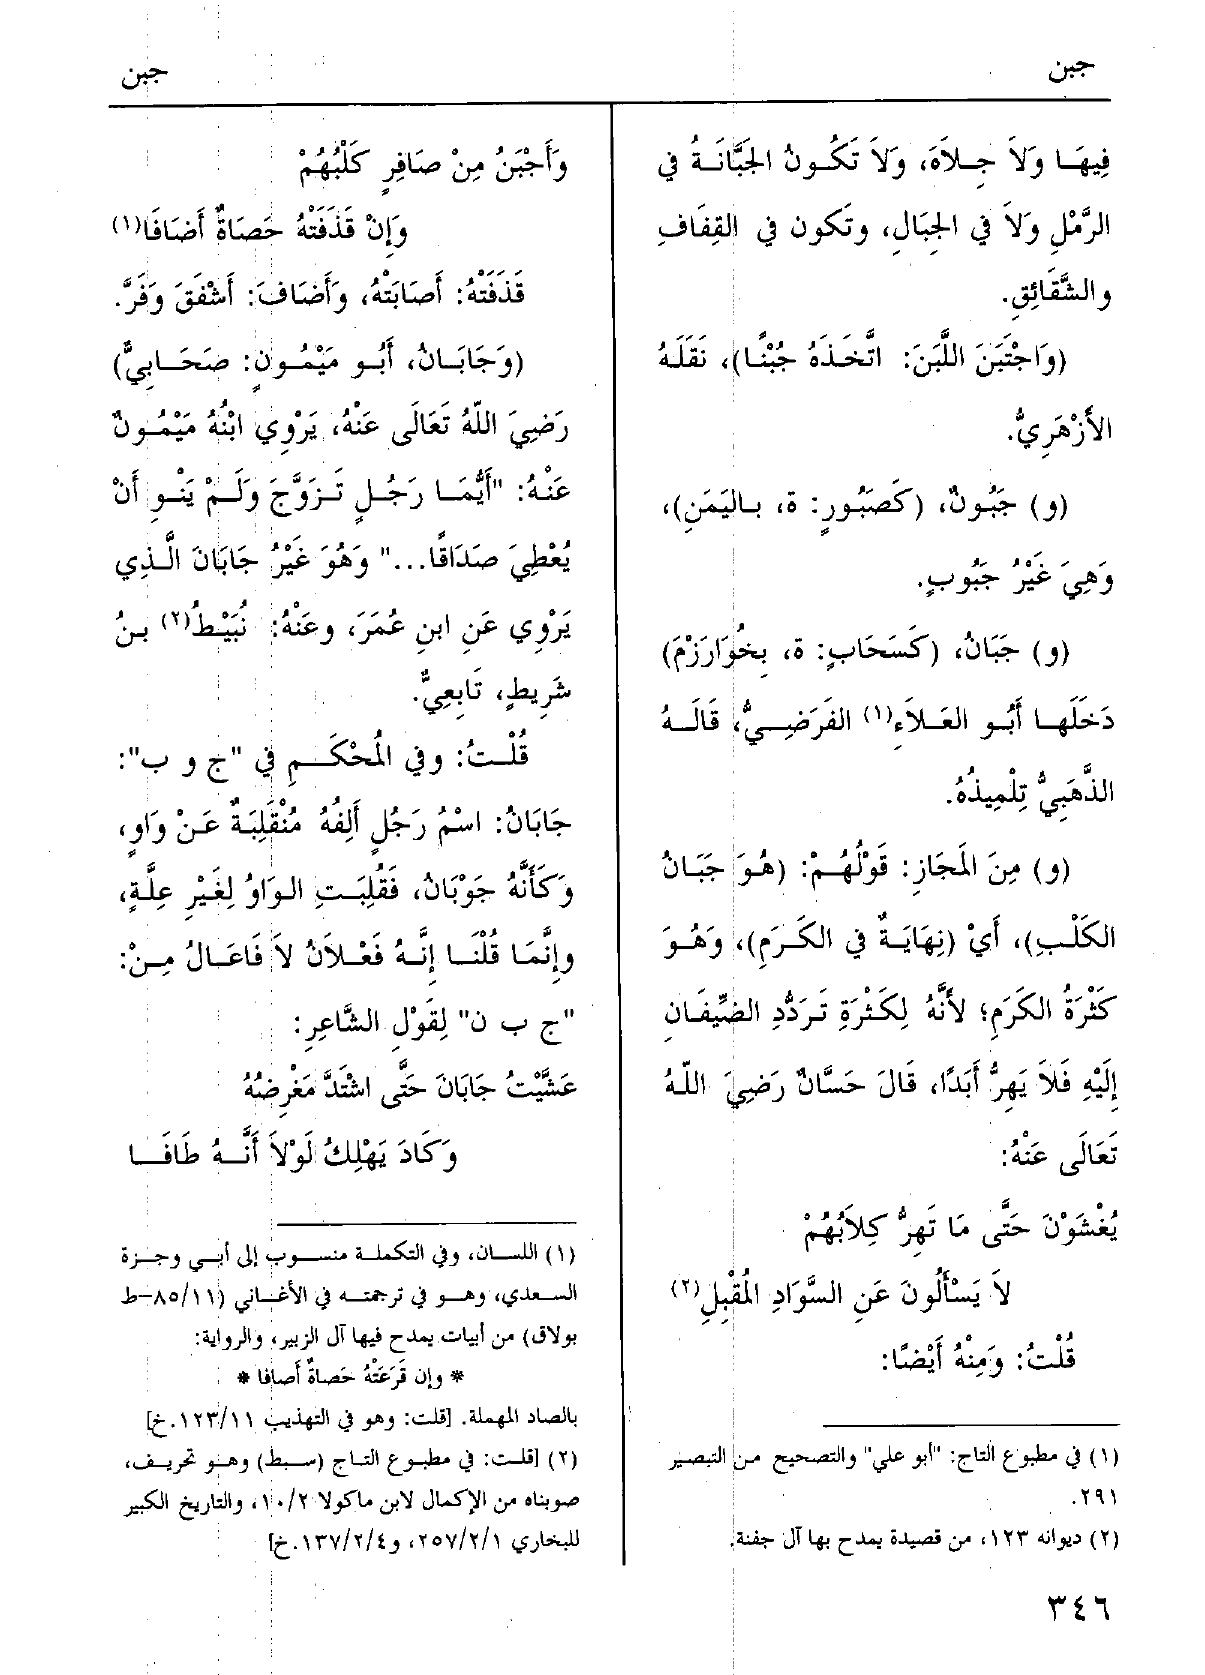 جبن
جبن
فِيهَا وَلاَ جِلاَهَ، وَلاَ تَكُونُ الجَبَّانَةُ فِي
الرَّمْلِ وَلاَ فِي الجِبَالِ، وتَكُون فِي القِفَافِ
والشَّقَائِقِ.
(وَاجْتَبَنَ اللَّبَنَ: اتَّخَذَهُ جُبْنًا)، نَقَلَهُ
الأَزْهَرِيُّ.
(و) جَبُونٌ، (كَصَبُورٍ: ة، بِاليَمَنِ)،
وَهِيَ غَيْرُ جَبُوبٍ.
(و) جَبَانُ، (كَسَحَابٍ: ة، بِخُوَارَزْمَ)
دَخَلَهَا أَبُو العَلاَءِ(١) الفَرَضِيُّ، قَالَهُ
الذَّهَبِيُّ تِلْمِيذُهُ.
(و) مِنَ المَجَازِ: قَوْلُهُمْ: (هُوَ جَبَانُ
الكَلْبِ)، أَيْ (نِهَايَةٌ فِي الكَرَمِ)، وَهُوَ
كَثْرَةُ الكَرَمِ؛ لأَنَّهُ لِكَثْرَةِ تَرَدُّدِ الضِّيفَانِ
إِلَيْهِ فَلاَ يَهِرُّ أَبَدًا، قَالَ حَسَّانُ رَضِيَ اللّهُ
تَعَالَى عَنْهُ:
يُغْشَوْنَ حَتَّى مَا تَهِرُّ كِلاَبُهُمْ
لاَ يَسْأَلُونَ عَنِ السَّوَادِ المُقْبِلِ(٢)
قُلْتُ: وَمِنْهُ أَيْضًا:
(١) في مطبوع التاج: "أبو علي" والتصحيح من التبصير
٢٩١.
(٢) ديوانه ١٢٣، من قصيدة يمدح بها آل جفنة.
وَأَجْبَنُ مِنْ صَافِرٍ كَلْبُهُمْ
وَإِنْ قَذَفَتْهُ حَصَاةٌ أَضَافَا(١)
قَذَفَتْهُ: أَصَابَتْهُ، وَأَضَافَ: أَشْفَقَ وَفَرَّ.
(وَجَابَانُ، أَبُو مَيْمُونٍ: صَحَابِيٌّ)
رَضِيَ اللّهُ تَعَالَى عَنْهُ، يَرْوِي ابْنُهُ مَيْمُونٌ
عَنْهُ: "أَيُّمَا رَجُلٍ تَزَوَّجَ وَلَمْ يَنْوِ أَنْ
يُعْطِيَ صَدَاقًا..." وَهُوَ غَيْرُ جَابَانَ الَّذِي
يَرْوِي عَنِ ابنِ عُمَرَ، وعَنْهُ: نُبَيْطُ(٢) بنُ
شَرِيطٍ، تَابِعِيٌّ.
قُلْتُ: وفي المُحْكَمِ فِي "ج و ب":
جَابَانُ: اسْمُ رَجُلٍ أَلِفُهُ مُنْقَلِبَةٌ عَنْ وَاوٍ،
وَكَأَنَّهُ جَوْبَانُ، فَقُلِبَتِ الوَاوُ لِغَيْرِ عِلَّةٍ،
وإِنَّمَا قُلْنَا إِنَّهُ فَعْلاَنُ لاَ فَاعَالُ مِنْ:
"ج ب ن" لِقَوْلِ الشَّاعِرِ:
عَشَّيْتُ جَابَانَ حَتَّى اشْتَدَّ مَغْرِضُهُ
وَكَادَ يَهْلِكُ لَوْلاَ أَنَّهُ طَافَا
(١) اللسان، وفي التكملة منسوب إلى أبي وجزة
السعدي، وهو في ترجمته في الأغاني (٨٥/١١-ط
بولاق) من أبيات يمدح فيها آل الزبير، والرواية:
* وإن قَرَعَتْهُ حَصاةٌ أَصافا *
بالصاد المهملة. [قلت: وهو في التهذيب ١٢٣/١١.خ]
(٢) [قلت: في مطبوع التاج (سبط) وهو تحريف،
صوبناه من الإكمال لابن ماكولا ١٠/٢، والتاريخ الكبير
للبخاري ٢٥٧/٢/١، و١٣٧/٢/٤.خ]
٣٤٦